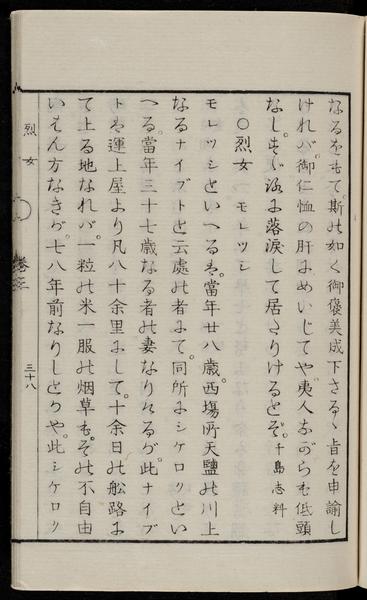 なるをもて。斯の如く御褒美成下さるゝ旨を申諭し
けれバ。御仁恤の肝にめいじてや夷人ながらも低頭
なし。たゞ涙に落涙して居たりけるとぞ。千島志料
〇烈女 モレツシ
モレツシといへるは。當年廿八歳。西場所天鹽の川上
なるナイブトと云處の者にて。同所にシケロクとい
へる。當年三十七歳なる者の妻なりけるが。此ナイブ
トは運上屋より凡八十余里にして。十余日の舩路に
て上る地なれバ。一粒の米一服の烟草も。その不自由
いはん方なきが。七八年前なりしとかや。此シケロク
烈女
三十八